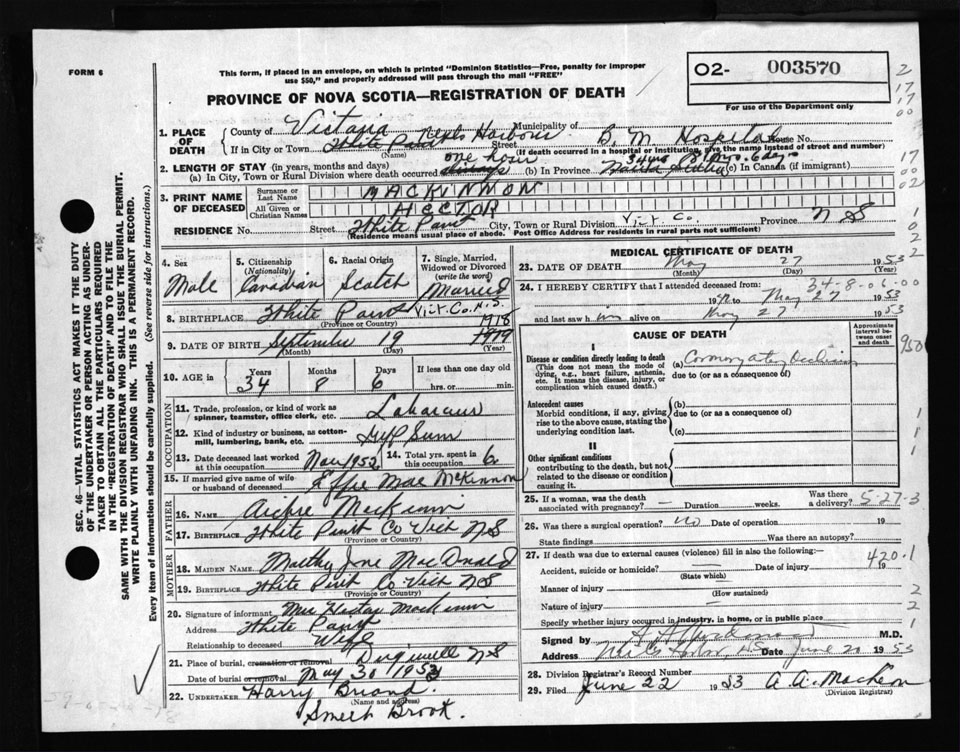 FORM 6
This form, if placed in an envelope, on which is printed "Dominion Statistics—Free, penalty for improper
use $50," and properly addressed will pass through the mail "FREE"
PROVINCE OF NOVA SCOTIA—REGISTRATION OF DEATH
02- 003570
For use of the Department only
2
17
17
00
17
00
02
1
02
2
2
SEC. 46—VITAL STATISTICS ACT MAKES IT THE DUTY
OF THE UNDERTAKER OR PERSON ACTING AS UNDER-
TAKER TO OBTAIN ALL THE PARTICULARS REQUIRED
IN THE "REGISTRATION OF DEATH" AND TO FILE THE
SAME WITH THE DIVISION REGISTRAR WHO SHALL ISSUE THE BURIAL PERMIT.
WRITE PLAINLY WITH UNFADING INK. THIS IS A PERMANENT RECORD.
Every item of information should be carefully supplied. (See reverse side for instructions.)
1. PLACE OF DEATH
County of Victoria Municipality of
If in City or Town White Point Neils Harbour Street B. M. Hospital House No.
(Name) (If death occurred in a hospital or institution, give the name instead of street and number)
2. LENGTH OF STAY (in years, months and days) one hour 34 yrs 8 mo. 6 days
(a) In City, Town or Rural Division where death occurred (b) In Province Nova Scotia (c) In Canada (if immigrant)
3. PRINT NAME OF DECEASED
Surname or Last Name MACKINNON
All Given or Christian Names HECTOR
RESIDENCE No. Street White Point City, Town or Rural Division Vict. Co. Province N S
(Residence means usual place of abode. Post Office Address for residents in rural parts not sufficient)
4. Sex
Male
5. Citizenship (Nationality)
Canadian
6. Racial Origin
Scotch
7. Single, Married, Widowed or Divorced (write the word)
Married
8. BIRTHPLACE White Point Vict. Co. N.S.
(Province or Country)
9. DATE OF BIRTH September 19 1918
(Month) (Day) (Year)
10. AGE in Years Months Days If less than one day old
34 8 6 hrs. or min.
OCCUPATION
11. Trade, profession, or kind of work as spinner, teamster, office clerk, etc.
12. Kind of industry or business, as cotton-mill, lumbering, bank, etc. Gyp Sum
13. Date deceased last worked at this occupation Nov 1952
14. Total yrs. spent in this occupation 6
15. If married give name of wife or husband of deceased Effie Mae McKinnon
FATHER
16. NAME MacKinnin
17. BIRTHPLACE White Point Co Vich NS
(Province or Country)
MOTHER
18. MAIDEN NAME Jone MacDonald
19. BIRTHPLACE White Point Co Vich NS
(Province or Country)
20. Signature of informant Mrs MacKinnin
Address White Point
Relationship to deceased Wife
21. Place of burial, cremation or removal NS
Date of burial or removal May 30 1953
22. UNDERTAKER Harry Briand
(Name and address)
Smelt Brook.
MEDICAL CERTIFICATE OF DEATH
23. DATE OF DEATH May 27 1953
(Month) (Day) (Year)
24. I HEREBY CERTIFY that I attended deceased from 34-8-06-00
May 27 1953
and last saw him alive on May 27 1953
CAUSE OF DEATH
Approximate interval between onset and death
I
Disease or condition directly leading to death
(This does not mean the mode of dying, e.g., heart failure, asthenia, etc. It means the disease, injury, or complication which caused death.)
(a)
due to (or as a consequence of)
950
Antecedent causes
Morbid conditions, if any, giving rise to the above cause, stating the underlying condition last.
(b)
due to (or as a consequence of)
(c)
1
1
1
II
Other significant conditions
contributing to the death, but not related to the disease or condition causing it.
25. If a woman, was the death associated with pregnancy? — Duration weeks. Was there a delivery?
5-27-3
26. Was there a surgical operation? no Date of operation 19
State findings Was there an autopsy?
27. If death was due to external causes (violence) fill in also the following:—
420.1
Accident, suicide or homicide? — Date of injury 19
(State which)
Manner of injury
(How sustained)
2
Nature of injury —
2
Specify whether injury occurred in industry, in home, or in public place
1
Signed by M.D.
Address Date June 20 1953
28. Division Registrar's Record Number
29. Filed June 22 1953 A. A.
(Division Registrar)